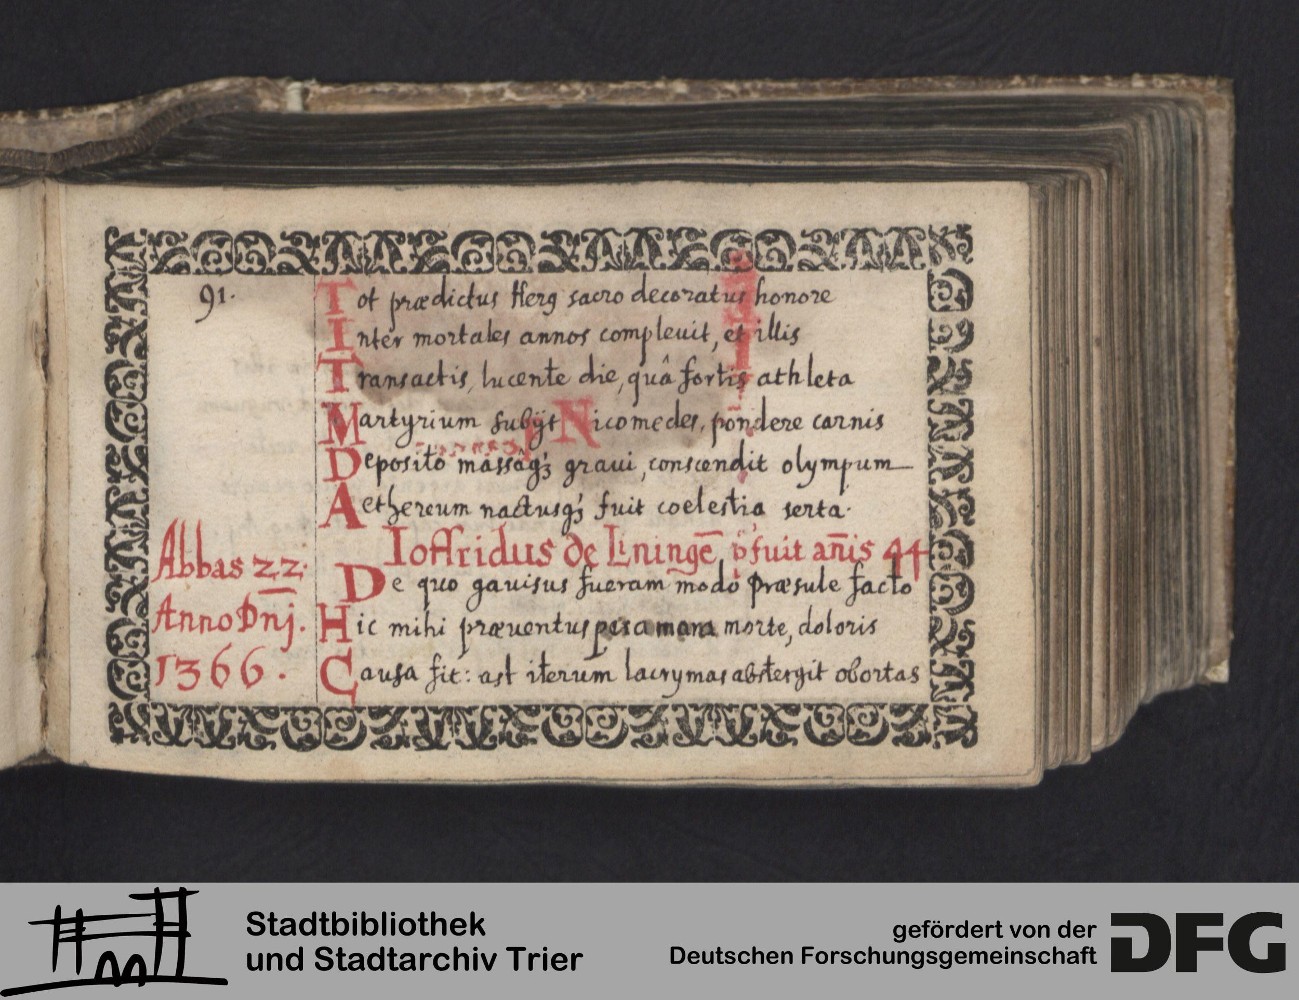 91.
Tot prædictus Herg sacro decoratus honore
Inter mortales annos compleuit, et illis
Transactis, lucente die, quâ fortis athleta
Martyrium subijt Nicomedes, põndere carnis
Deposito massâq; graui, conscendit olympum
Aethereum nactusq; fuit coelestia serta.
Abbas 22.
Anno Dnj.
1366.
Ioffridus de Liningẽ p̃fuit añis 44
De quo gauisus fueram modò præsule facto
Hic mihi præuentus morte, doloris
Causa fit: ast iterum lacrymas abstergit obortas
Stadtbibliothek
und Stadtarchiv Trier
gefördert von der
Deutschen Forschungsgemeinschaft
DFG